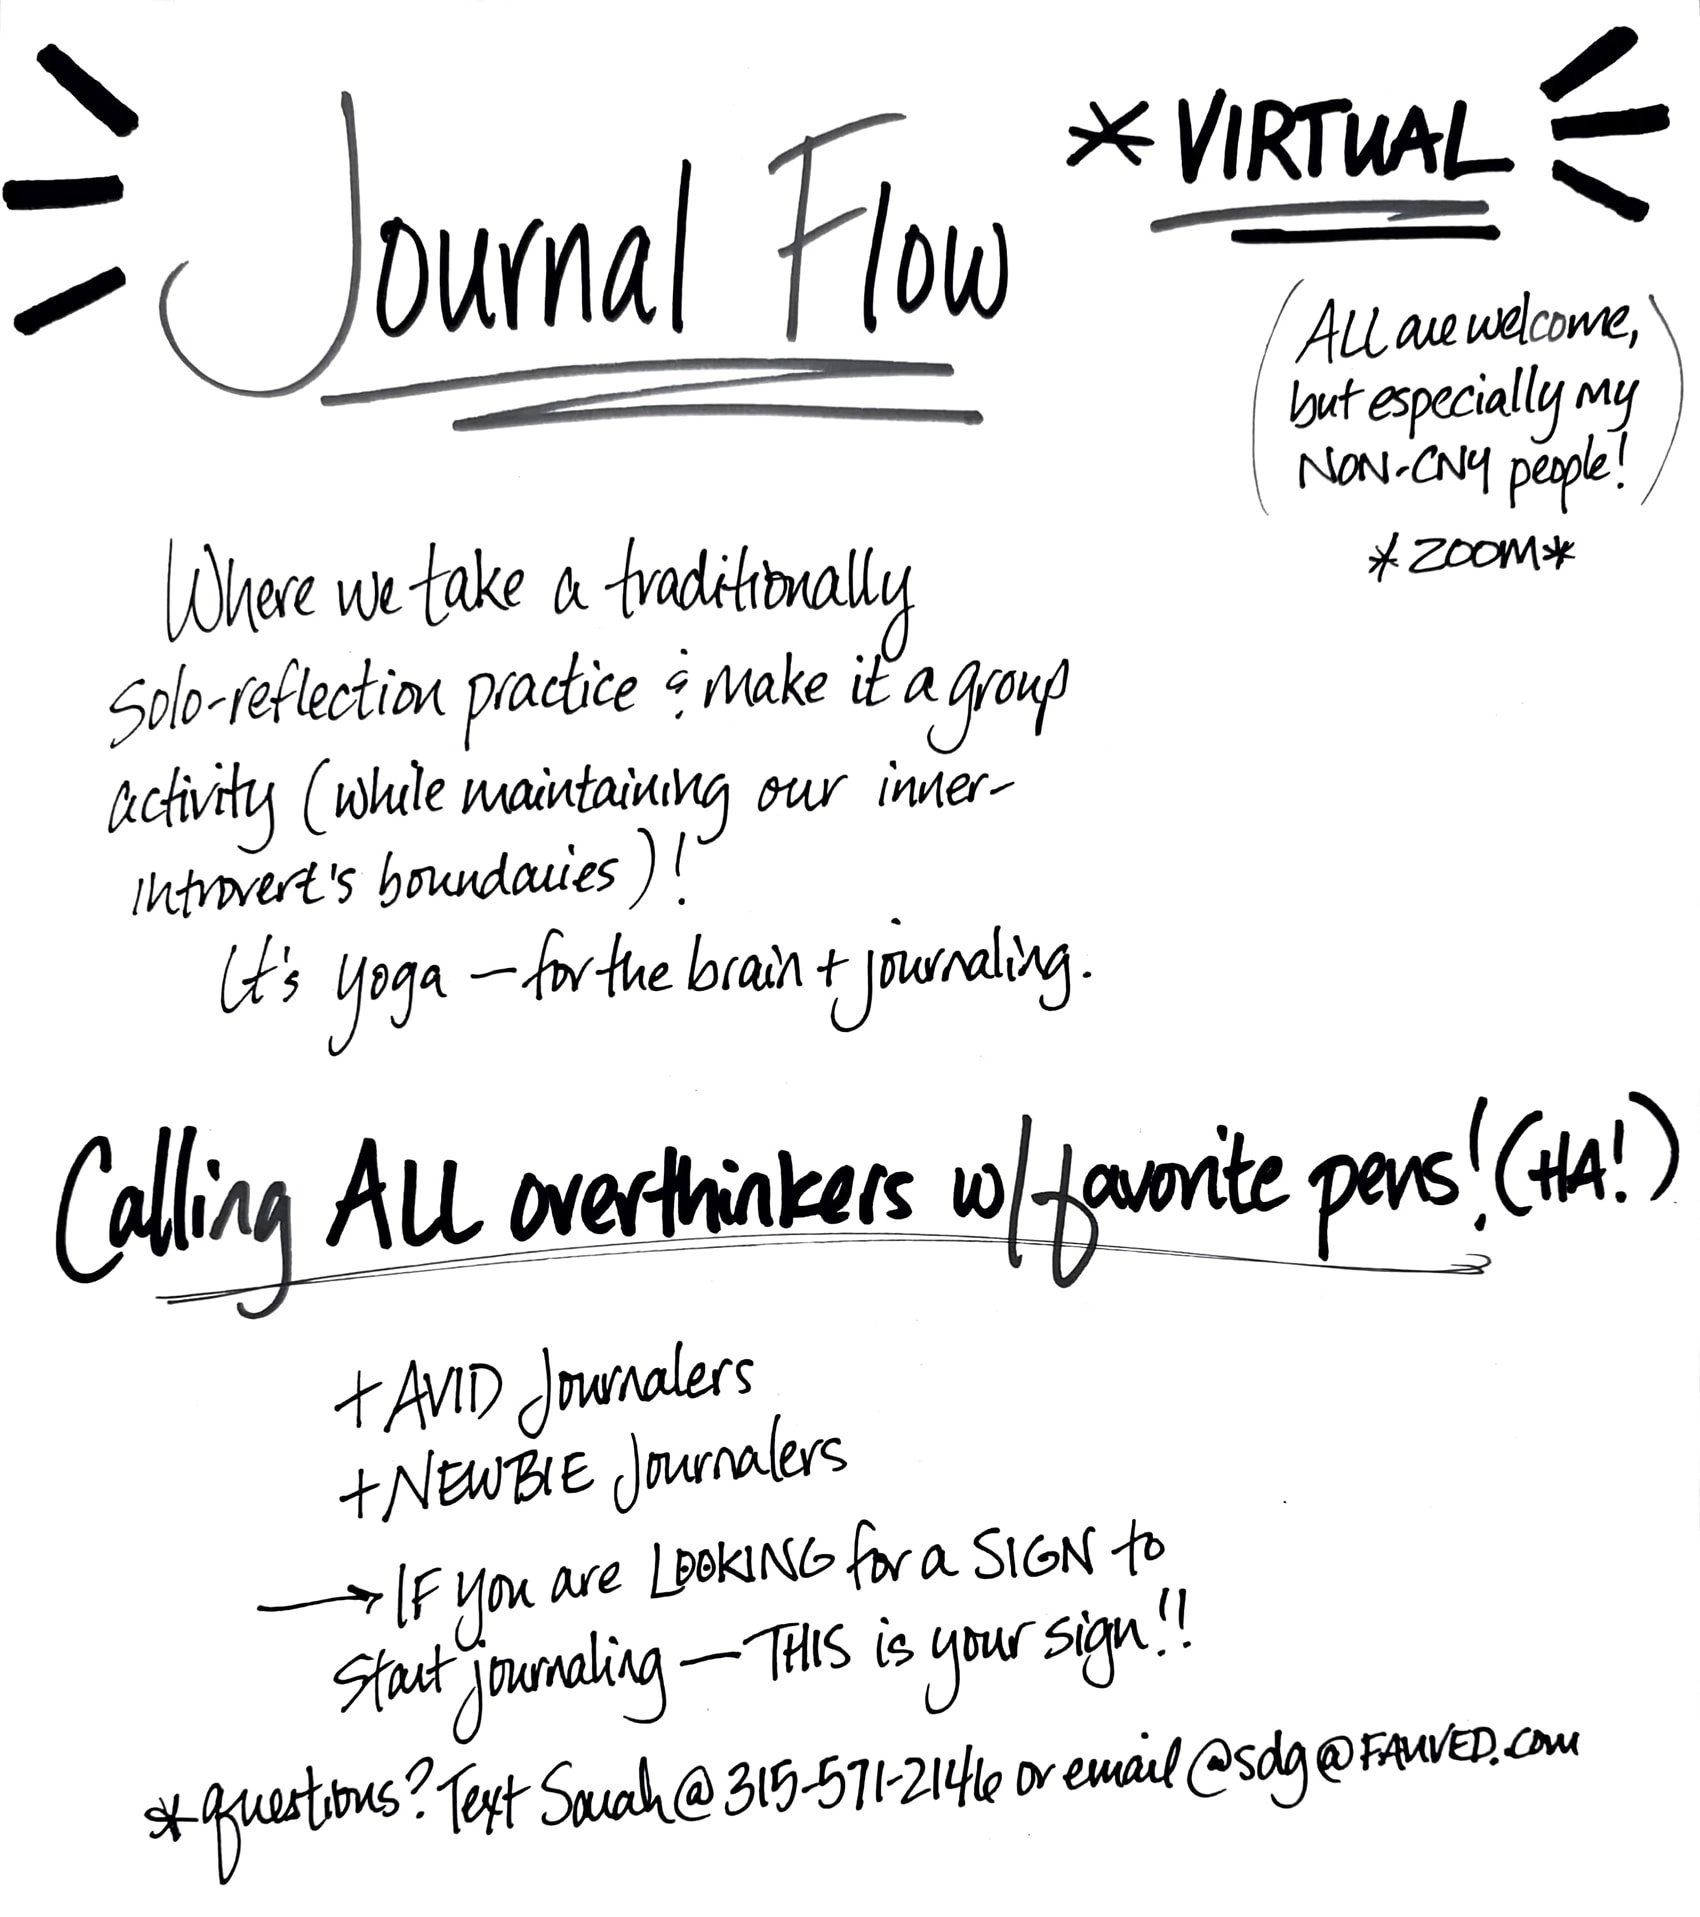 Journal Flow
* VIRTUAL
(All are welcome,
but especially my
NON-CNY people!)
*ZOOM*
Where we take a traditionally
solo-reflection practice & make it a group
activity (while maintaining our inner-
introvert's boundaries)!
It's yoga — for the brain + journaling.
Calling ALL overthinkers w/ favorite pens! (HA!)
+ AVID Journalers
+ NEWBIE Journalers
→ IF you are LOOKING for a SIGN to
start journaling — THIS is your sign!!
*questions? Text Sarah @ 315-571-2146 or email @sdg@FAUVED.com